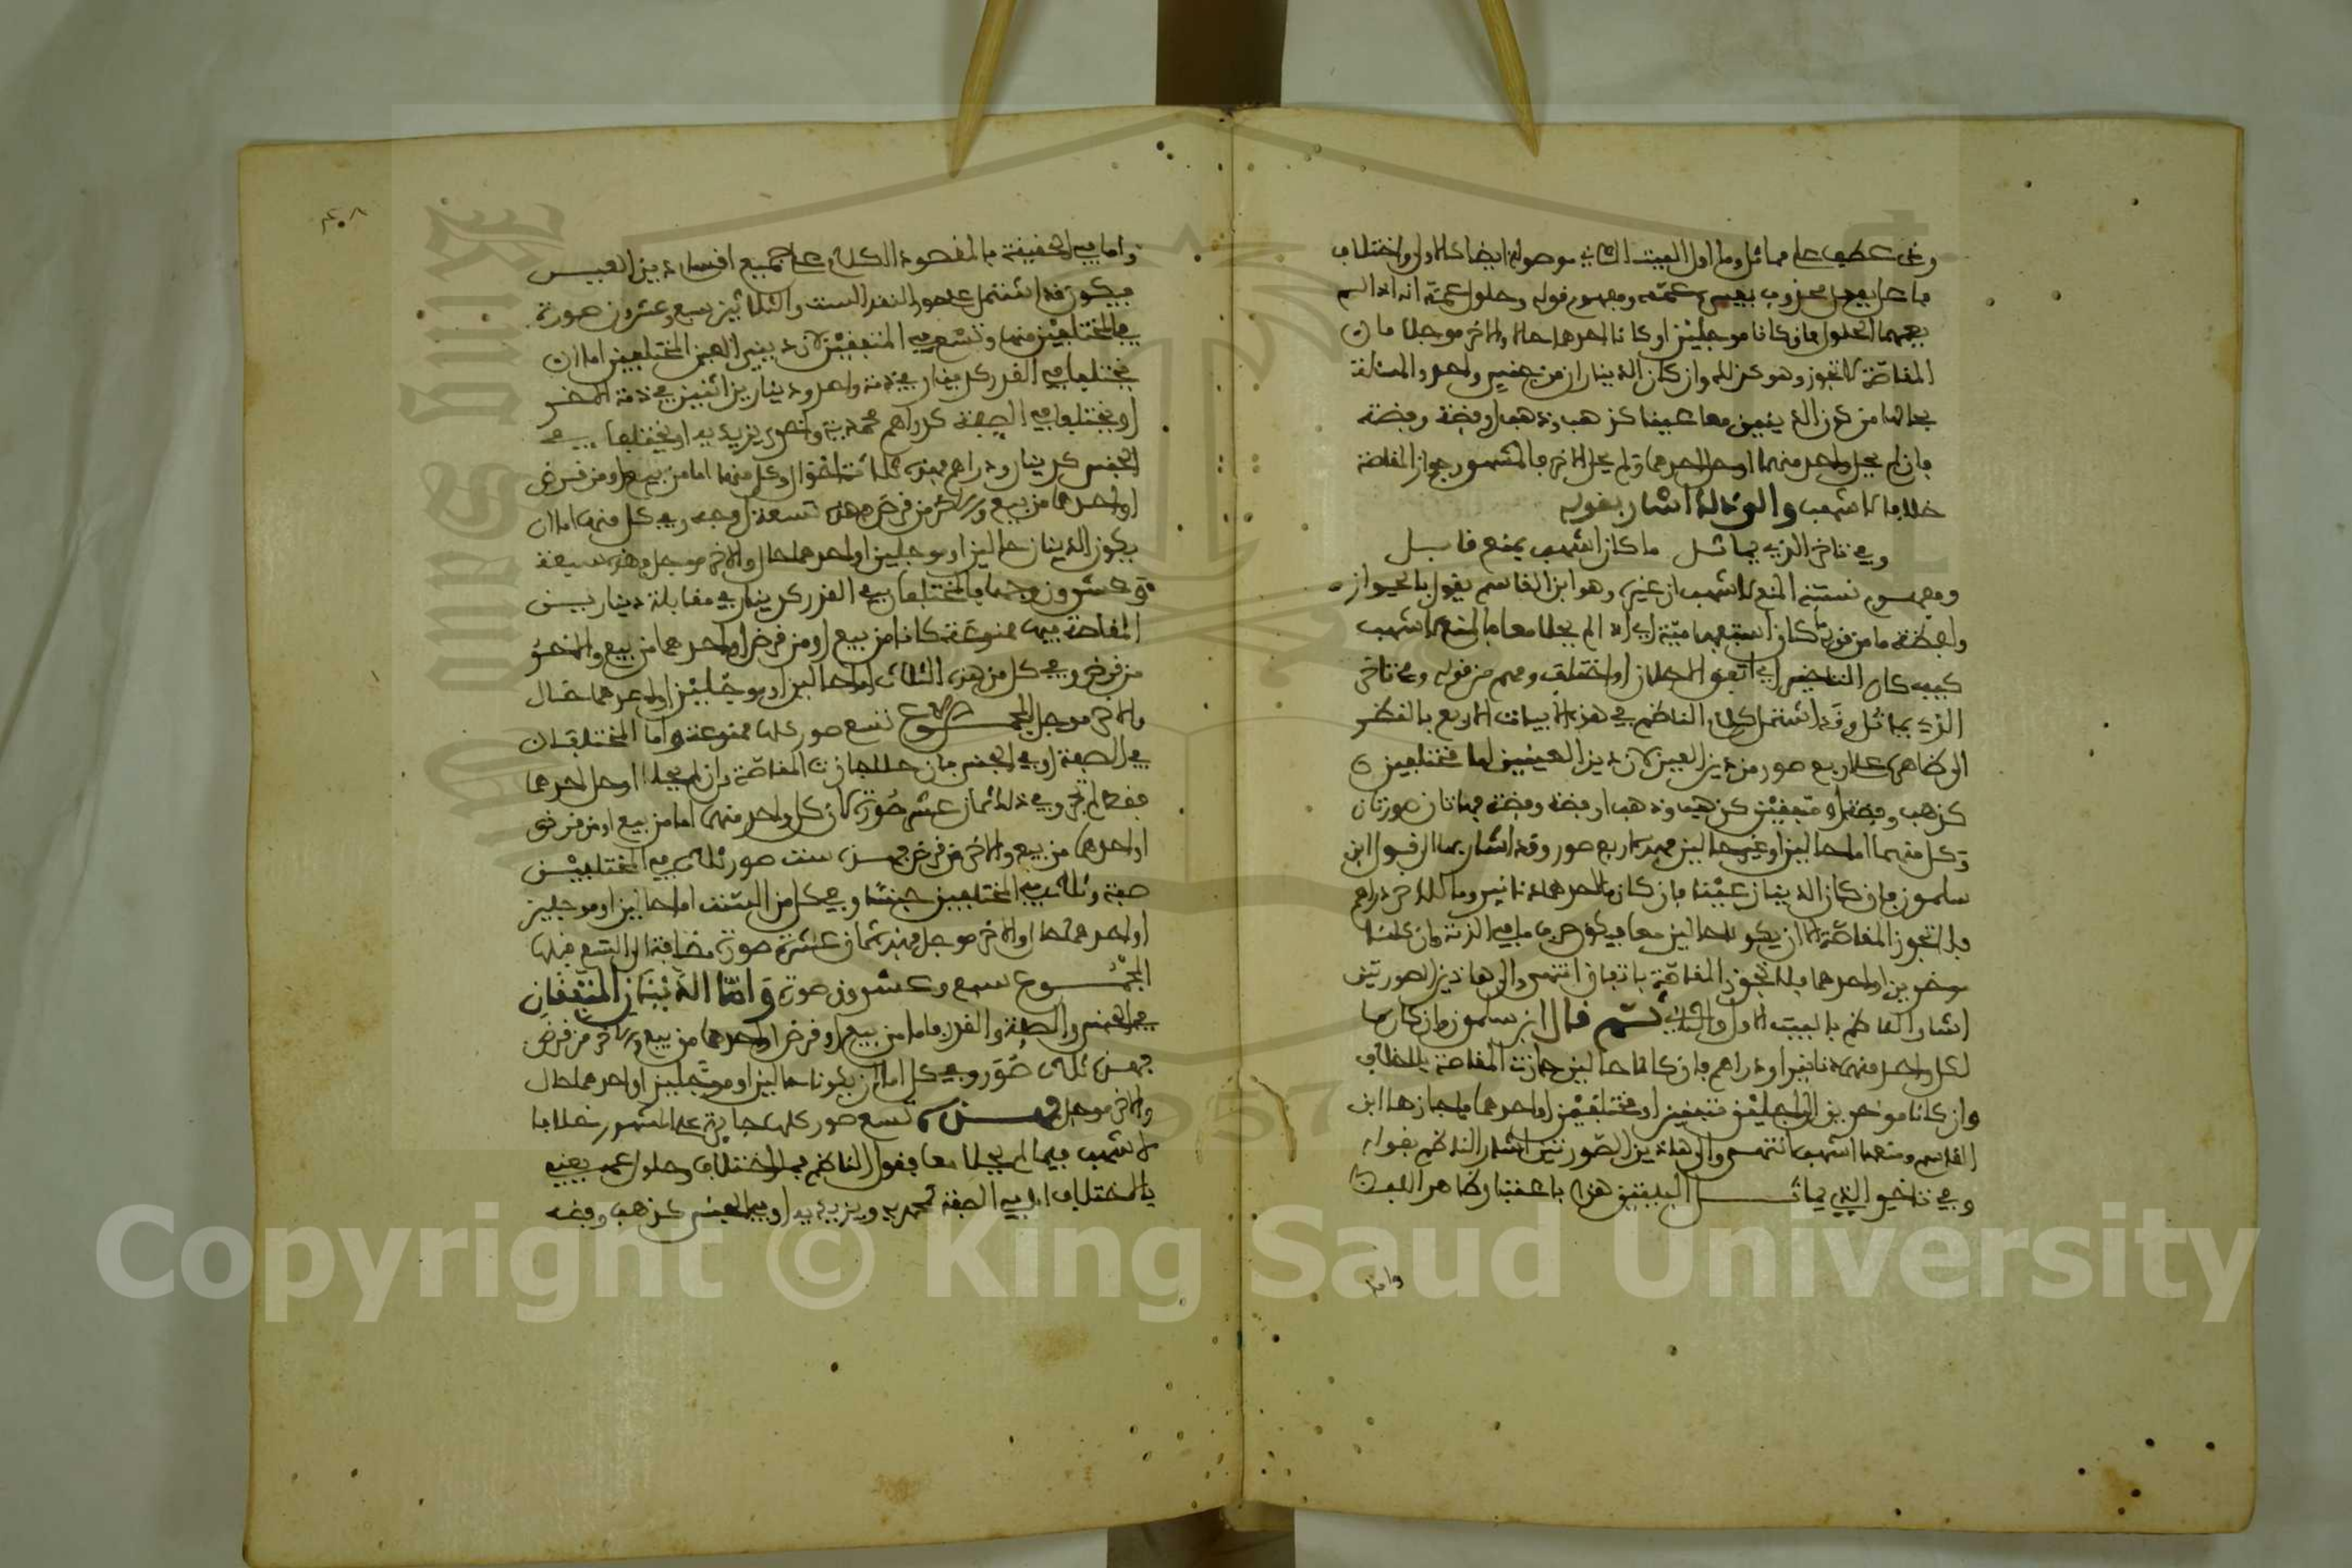 وفي عطف على مماثل وما اول البيت الثاني موصولة ايضا كالاول واختلاف
فاعل بفعل محذوف يفسره عمه ومفهوم قوله وحلول عمه انه اذا لم
يعمهما الحلول فان كانا مؤجلين او كانا احدهما حالا والاخر مؤجلا فان
المقاصة لا تجوز وهو كذلك وان كان الدينان من جنس واحد والمسالة
بحالها من كون الدينين معا عينا كذهب وذهب او فضة وفضة
فان لم يحل واحد منهما او حل احدهما ولم يحل الاخر فالمشهور جواز المقاصة
خلافا لاشهب والى ذلك اشار بقوله
وفي تاخر الذي يماثل ما كان اشهب بمنع قائل
ومفهوم نسبته المنع لاشهب ان غيره وهو ابن القاسم يقول بالجواز
ولفظة ما من قوله ما كان استفهامية اي اذا لم يحلا معا فالمنع لاشهب
كيف كان التاخير اي اتفق الاجلان او اختلف وفهم من قوله وفي تاخر
الذي يماثل وقد اشتمل كلام الناظم في هذه الابيات الاربع بالنظر
الى ظاهره على اربع صور من دين العين لان دين العينين اما مختلفين
كذهب وفضة او متفقين كذهب وذهب او فضة وفضة فهاتان صورتان
وكل منهما اما حالين او غير حالين فهذه اربع صور وقد اشار بها الى قول ابن
سلمون فان كان الدينان عينا فان كان ما لاحدهما دنانير وما للاخر دراهم
فلا تجوز المقاصة الا ان يكونا حالين معا فيكون صرف ما في الذمة وان كانا
موخرين او احدهما فلا تجوز المقاصة باتفاق انتهى والى هاذين الصورتين
اشار الناظم بالبيت الاول والثاني ثم قال ابن سلمون فان كان ما
لكل واحد منهما دنانير او دراهم فان كانا حالين جازت المقاصة بلا خلاف
وان كانا موخرين الى اجلين متفقين او مختلفين او احدهما فاجازها ابن
القاسم ومنعها اشهب انتهى والى هاذين الصورتين اشار الناظم بقوله
وفي تاخر الذي يماثل البيتين هذا باعتبار ظاهر اللفظ
واما
٤٠٨
واما في الحقيقة فالمقصود الكلام على جميع اقسام دين العين
فيكون قد اشتمل على صور النقد الست والثلاثين سبع وعشرون صورة
في المختلفين منها وتسع في المتفقين لان ديني العين المختلفين اما ان
يختلفا في القدر كدينار في ذمة واحد ودينارين اثنين في ذمة الاخر
او يختلفا في الصفة كدراهم محمدية واخرى يزيدية او يختلفا في
الجنس كدينار ودراهم فهذه ثلاثة احوال وكل منها اما من بيع او من قرض
او احدهما من بيع والاخر من قرض فهذه تسعة اوجه وفي كل منها اما ان
يكون الدينان حالين او مؤجلين او احدهما حال والاخر مؤجل فهذه سبعة
وعشرون وجها فالمختلفان في القدر كدينار في مقابلة دينارين
المقاصة فيها ممنوعة كانا من بيع او من قرض او احدهما من بيع والاخر
من قرض وفي كل من هذه الثلاث اما حالين او مؤجلين او احدهما حال
والاخر مؤجل المجموع تسع صور كلها ممنوعة واما المختلفان
في الصفة او في الجنس فان حلا جازت المقاصة وان لم يحلا او حل احدهما
فقط لم تجز وفي ذلك ثمان عشر صورة لان كل واحد منهما اما من بيع او من قرض
او احدهما من بيع والاخر من قرض فهذه ست صور ثلاث في المختلفين
صفة وثلاث في المختلفين جنسا وفي كل من الست اما حالين او مؤجلين
او احدهما حال والاخر مؤجل فهذه ثمان عشرة صورة مضافة الى التسع قبلها
المجموع سبع وعشرون صورة واما الدينان المتفقان
في الجنس والصفة والقدر فاما من بيع او قرض او احدهما من بيع والاخر من قرض
فهذه ثلاث صور وفي كل اما ان يكونا حالين او مؤجلين او احدهما حال
والاخر مؤجل فهذه تسع صور كلها جايزة على المشهور خلافا
لاشهب فيما لم يحلا معا فقول الناظم فما اختلاف وحلول عمه يعني
بالاختلاف اما في الصفة كمحمدية ويزيدية او في الجنس كذهب وفضة